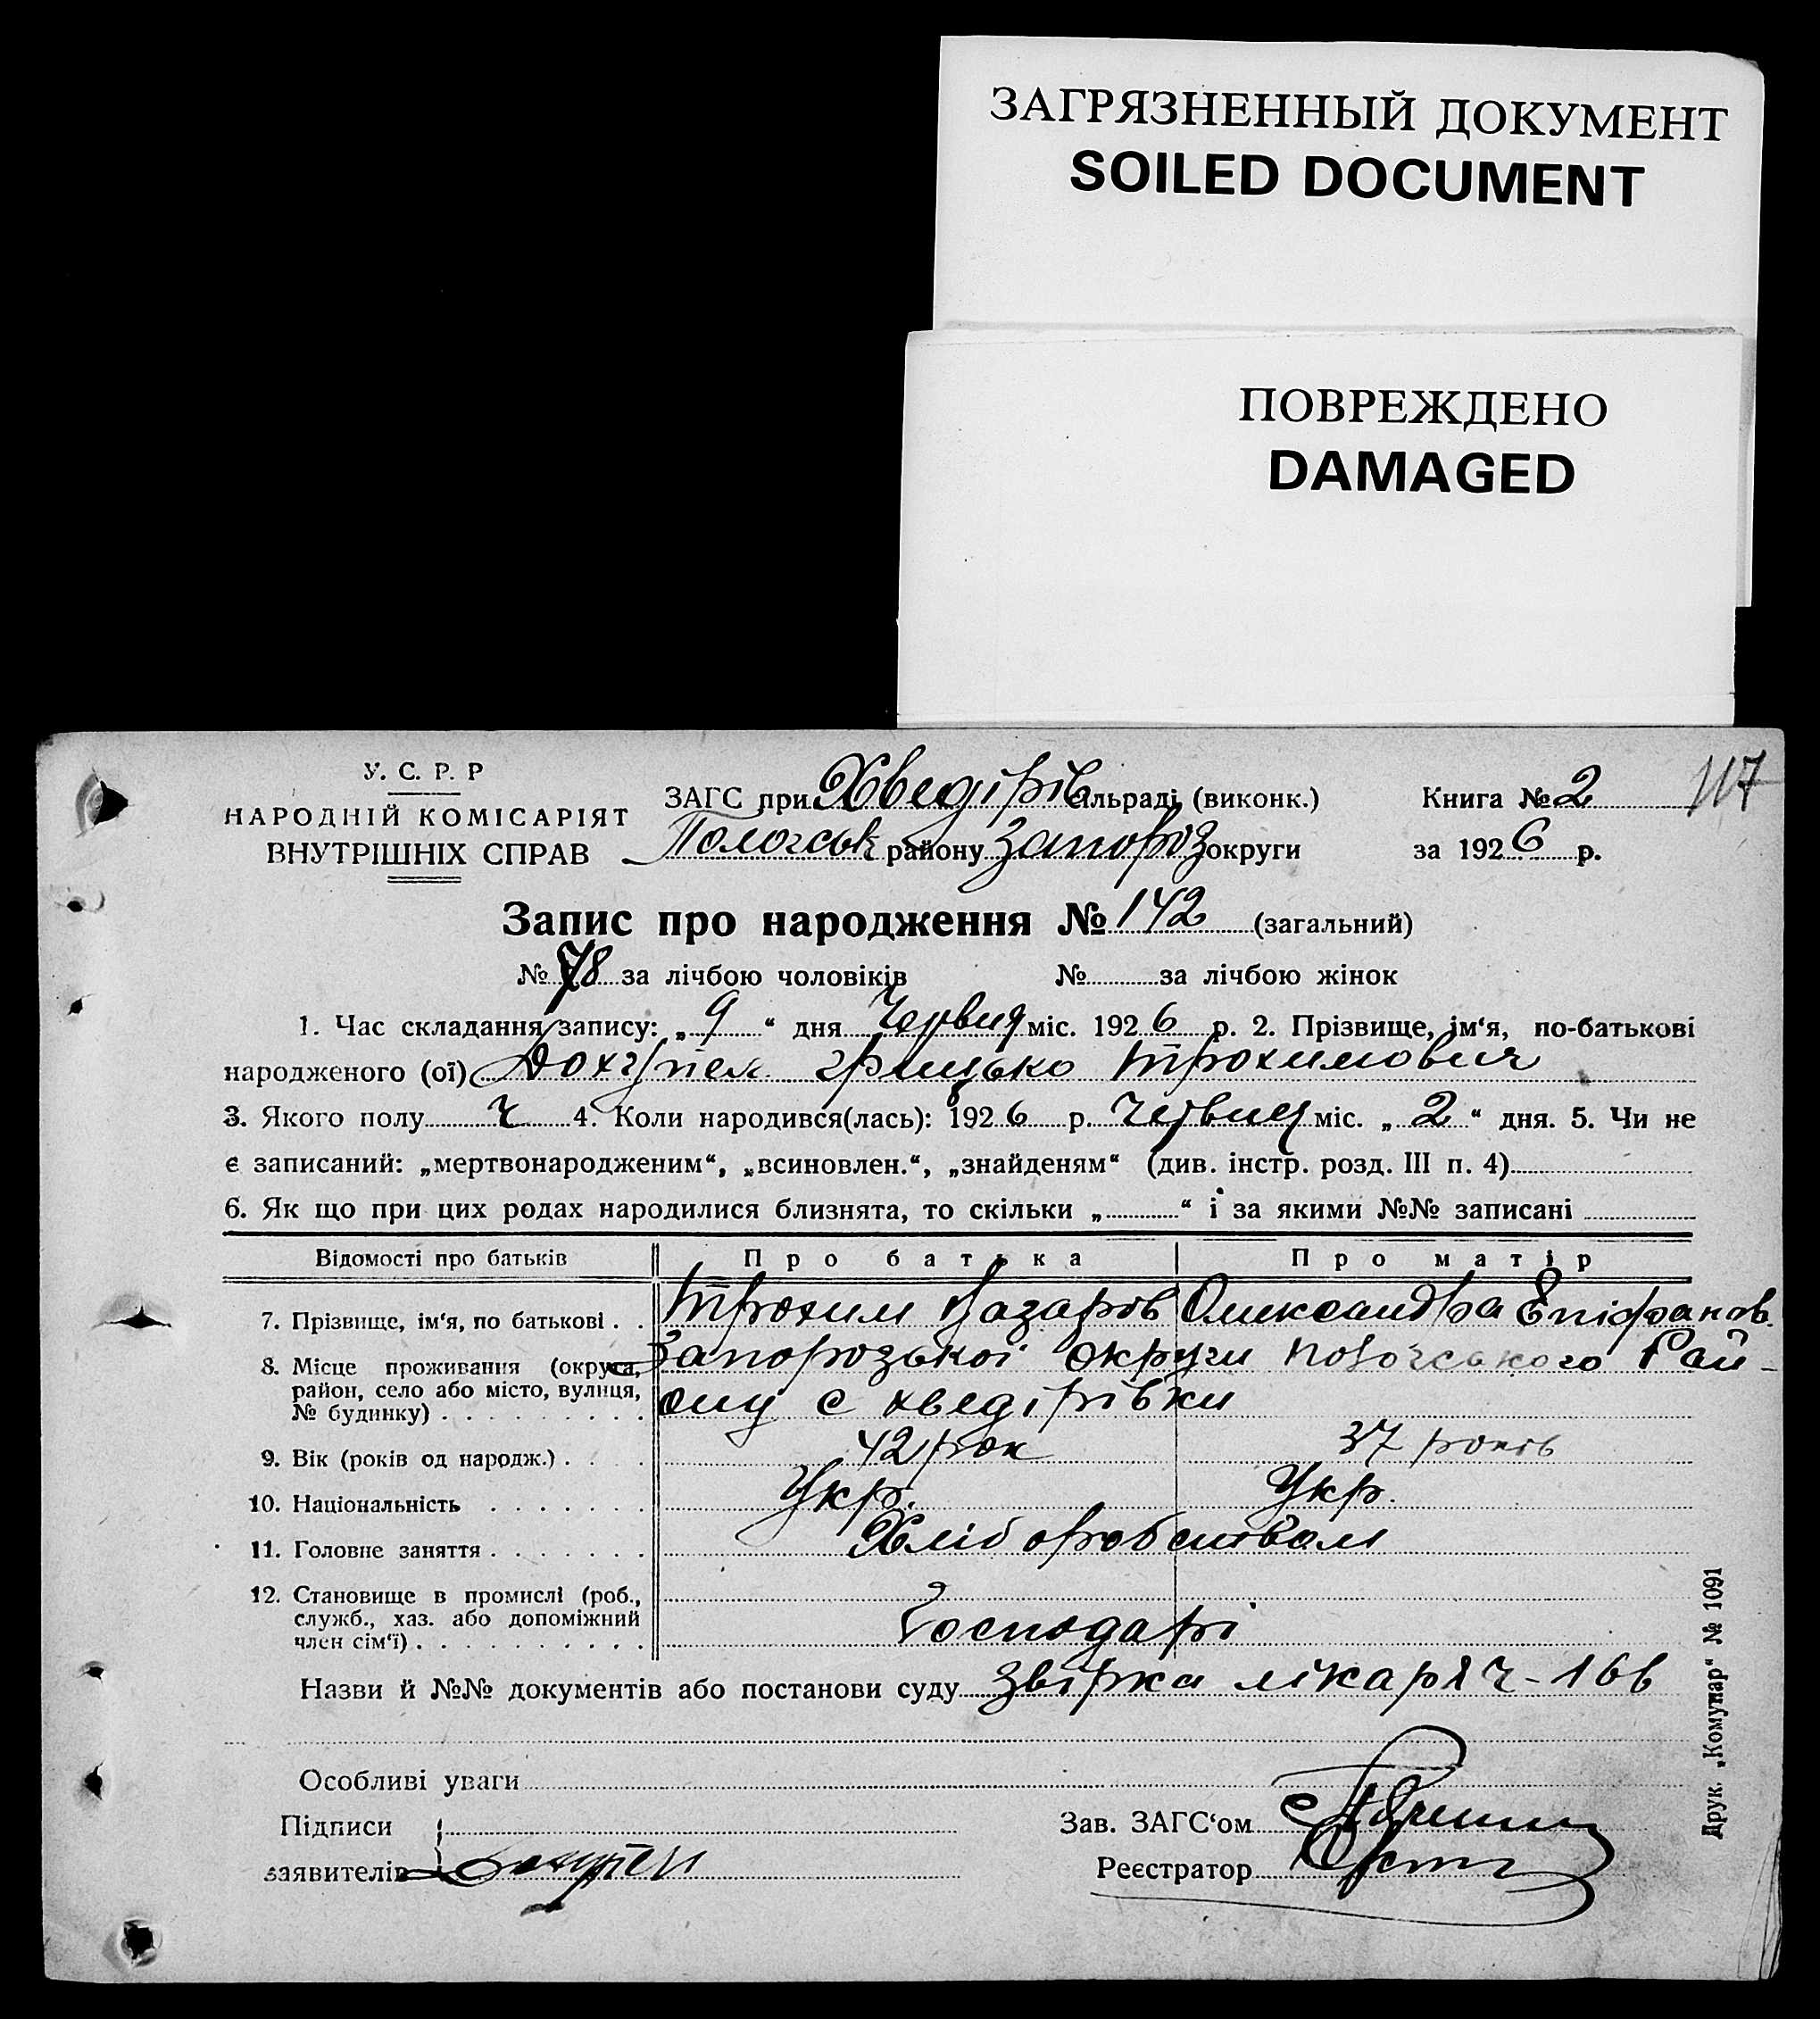 ЗАГРЯЗНЕННЫЙ ДОКУМЕНТ
SOILED DOCUMENT
ПОВРЕЖДЕНО
DAMAGED
У. С. Р. Р
НАРОДНІЙ КОМІСАРІЯТ
ВНУТРІШНІХ СПРАВ
ЗАГС при Хведірів сільраді (виконк.)
Пологськ району Запороз округи
Книга № 2
за 1926 р.
117
Запис про народження № 142 (загальний)
№ 78 за лічбою чоловіків № за лічбою жінок
1. Час складання запису: „ 9 “ дня Червня міс. 1926 р. 2. Прізвище, ім‘я, по-батькові
народженого (ої) Грицько Трохимович
3. Якого полу ч 4. Коли народився(лась): 1926 р. Червня міс. „ 2 “ дня. 5. Чи не
є записаний: „мертвонародженим“, „всиновлен.“, „знайденям“ (див. інстр. розд. III п. 4)
6. Як що при цих родах народилися близнята, то скільки „ “ і за якими №№ записані
Відомості про батьків Про батька Про матір
7. Прізвище, ім‘я, по батькові . . Трохим Назаров Олександра Епіфанов.
8. Місце проживання (округа, район, село або місто, вулиця, № будинку) Запорозької округи Пологського Рай-
ону с хведірівки
9. Вік (років од народж.) 42 рок 37 років
10. Національність Укр. Укр.
11. Головне заняття Хліборобством
12. Становище в промислі (роб., служб., хаз. або допоміжний член сім‘ї) Господарі
Назви й №№ документів або постанови суду звірка лікаря ч - 166
Особливі уваги
Підписи заявителів
Зав. ЗАГС‘ом
Реєстратор
Друк. „Комунар“ № 1091